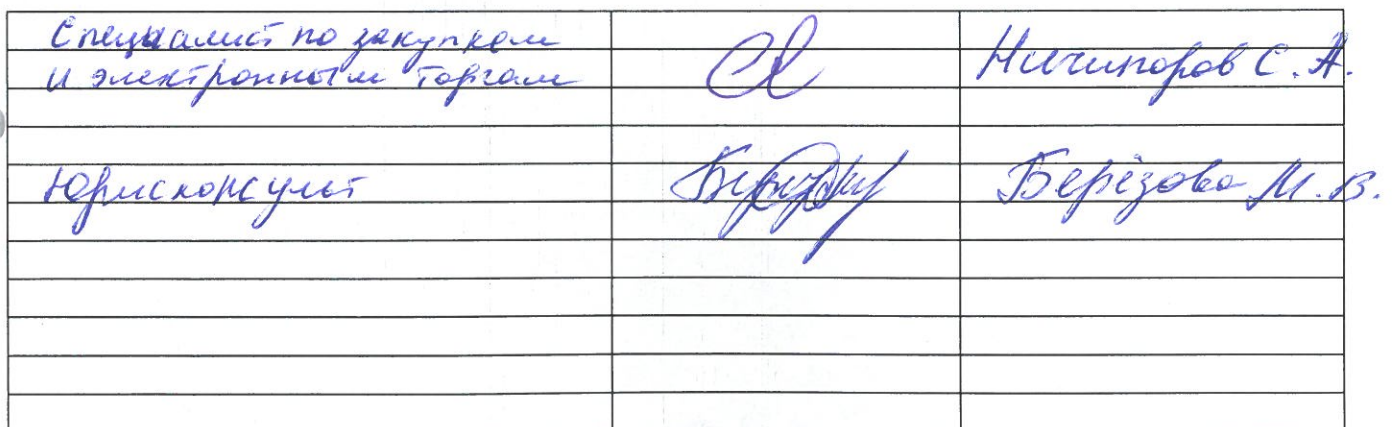 Специалист по закупкам
и электронным торгам
Ничипоров С.А.
Юрисконсульт
Берёзова М.В.